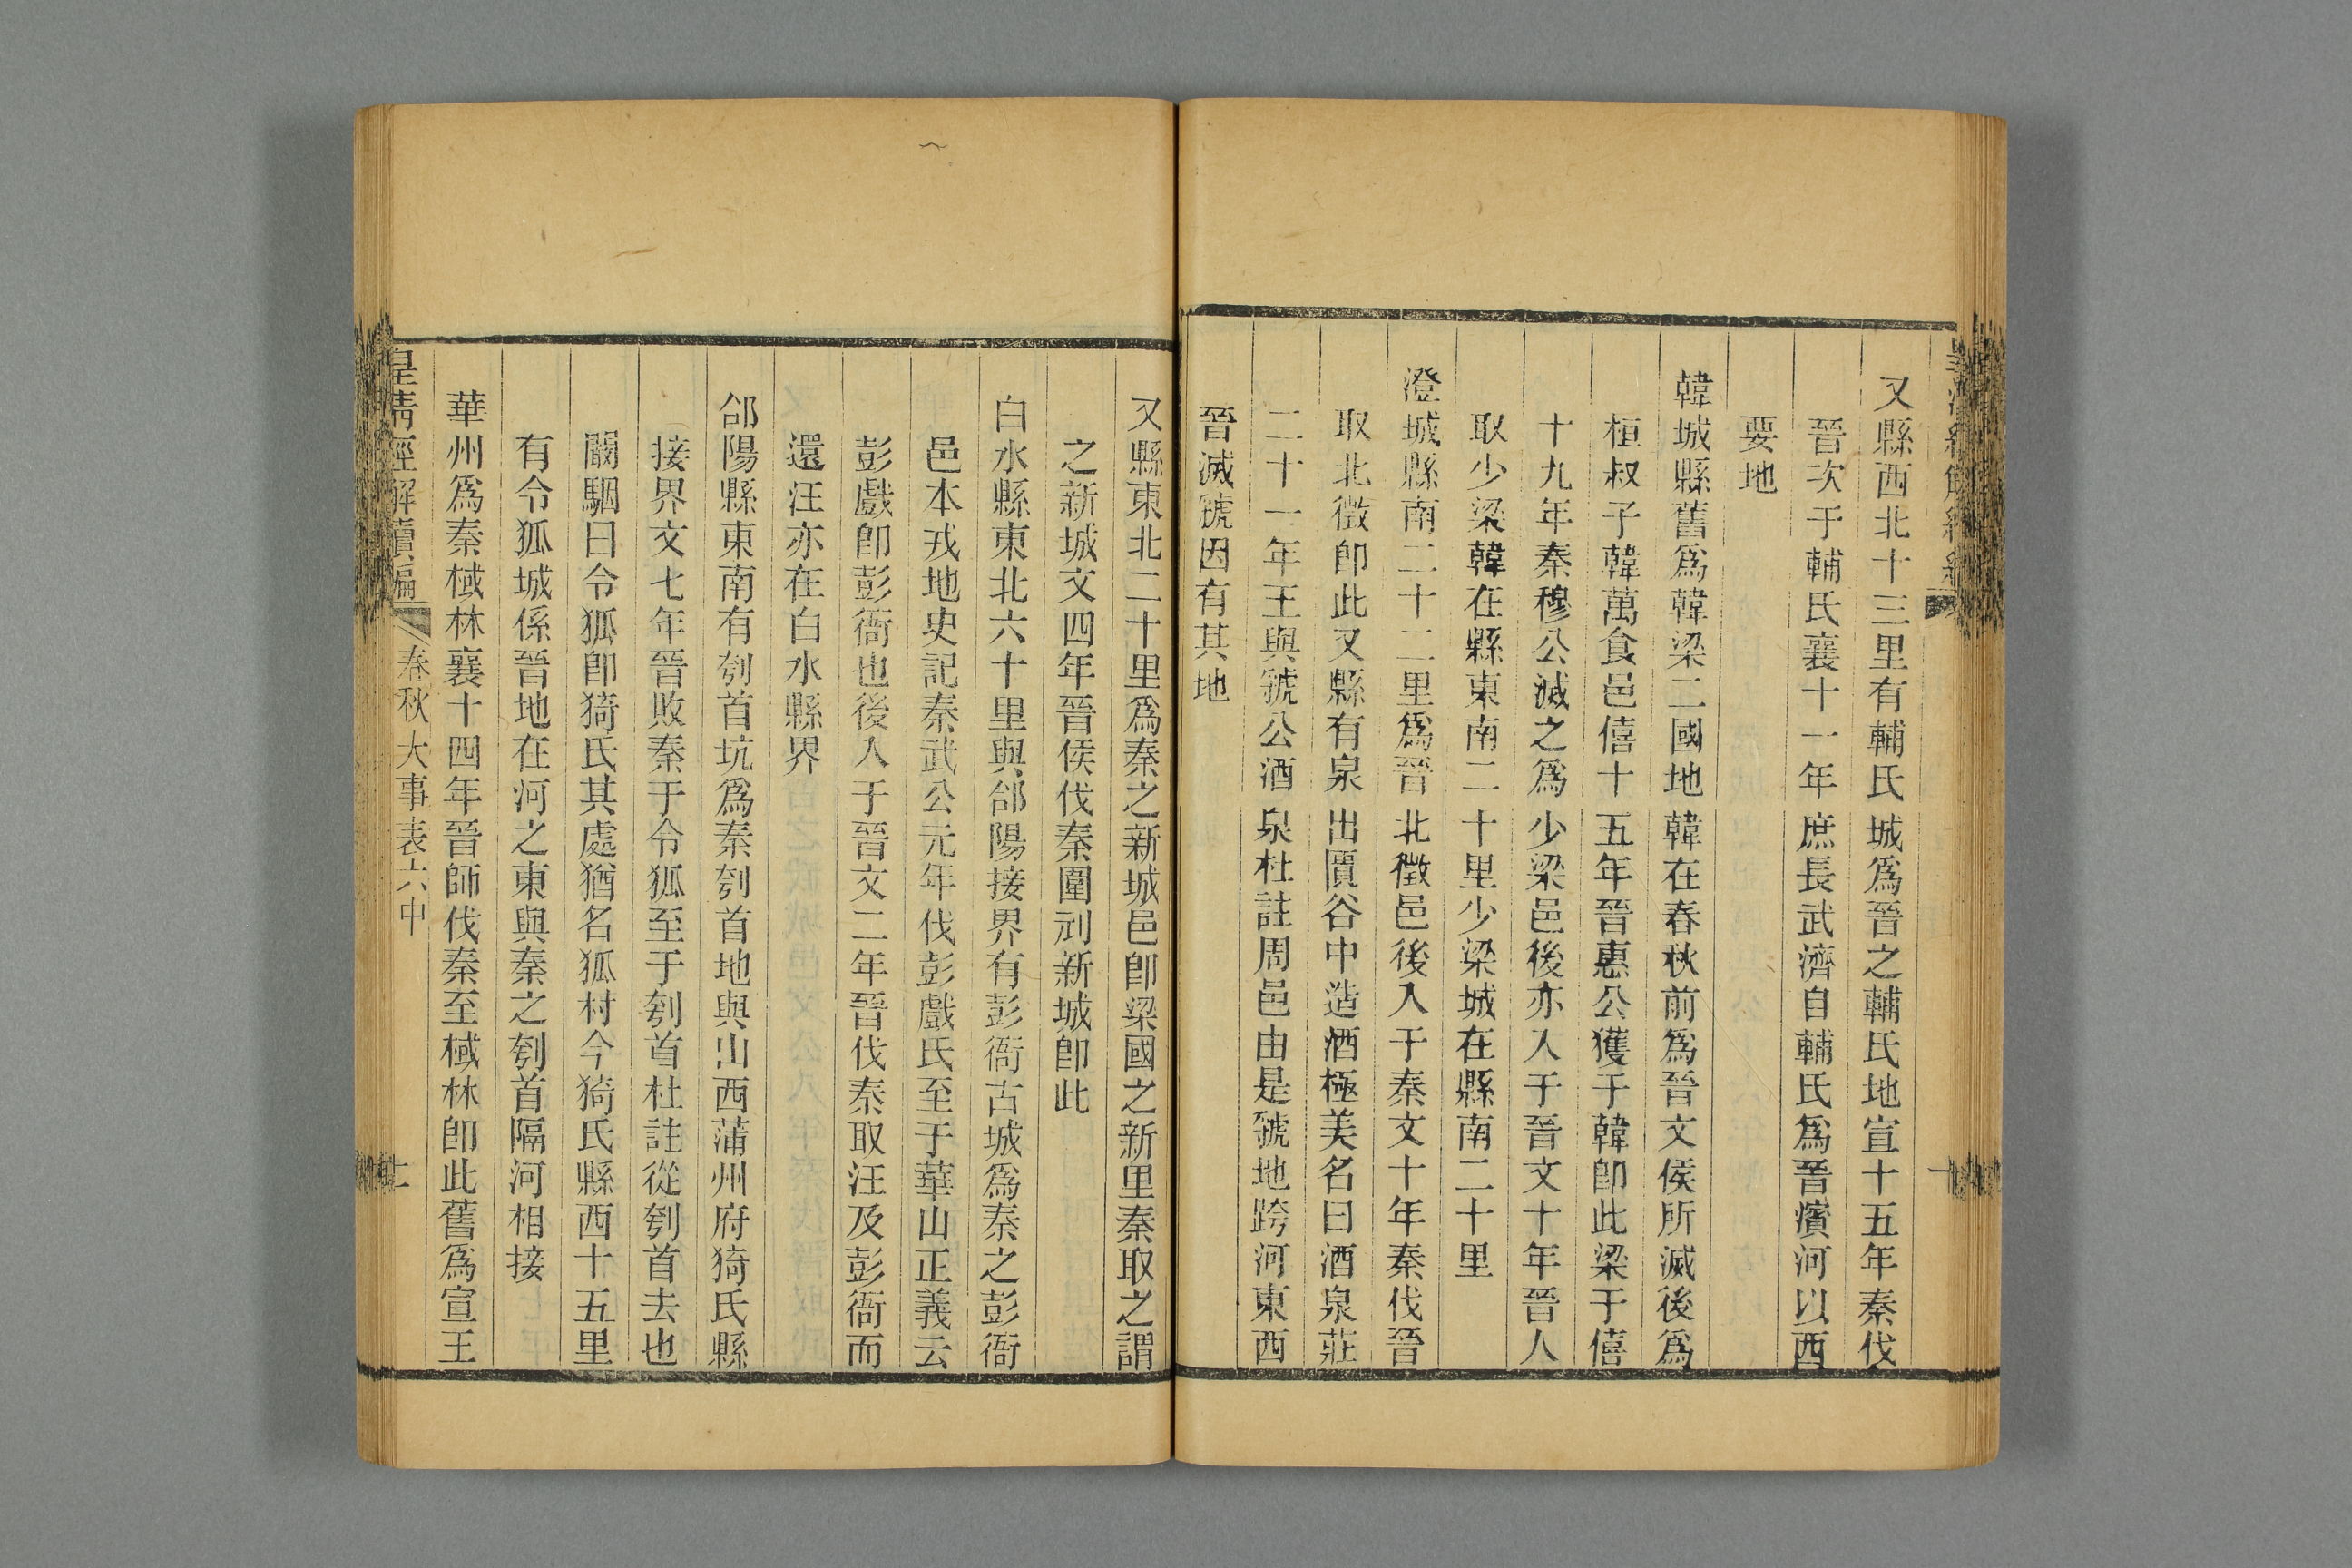 又縣西北十三里有輔氏城爲晉之輔氏地宣十五年秦伐
晉次于輔氏襄十一年庶長武濟自輔氏爲晉濱河以西
要地
韓城縣舊爲韓梁二國地韓在春秋前爲晉文侯所滅後爲
桓叔子韓萬食邑僖十五年晉惠公獲于韓卽此梁于僖
十九年秦穆公滅之爲少梁邑後亦入于晉文十年晉人
取少梁韓在縣東南二十里少梁城在縣南二十里
澄城縣南二十二里爲晉北徵邑後入于秦文十年秦伐晉
取北徵卽此又縣有泉出匱谷中造酒極美名曰酒泉莊
二十一年王與虢公酒泉杜註周邑由是虢地跨河東西
晉滅虢因有其地
又縣東北二十里爲秦之新城邑卽梁國之新里秦取之謂
之新城文四年晉侯伐秦圍刓新城卽此
白水縣東北六十里與郃陽接界有彭衙古城爲秦之彭衙
邑本戎地史記秦武公元年伐彭戲氏至于華山正義云
彭戲卽彭衙也後入于晉文二年晉伐秦取汪及彭衙而
還汪亦在白水縣界
郃陽縣東南有刳首坑爲秦刳首地與山西蒲州府猗氏縣
接界文七年晉敗秦于令狐至于刳首杜註從刳首去也
闞駰曰令狐卽猗氏其處猶名狐村今猗氏縣西十五里
有令狐城係晉地在河之東與秦之刳首隔河相接
華州爲秦棫林襄十四年晉師伐秦至棫林卽此舊爲宣王
皇清經解續編 春秋大事表六中 十